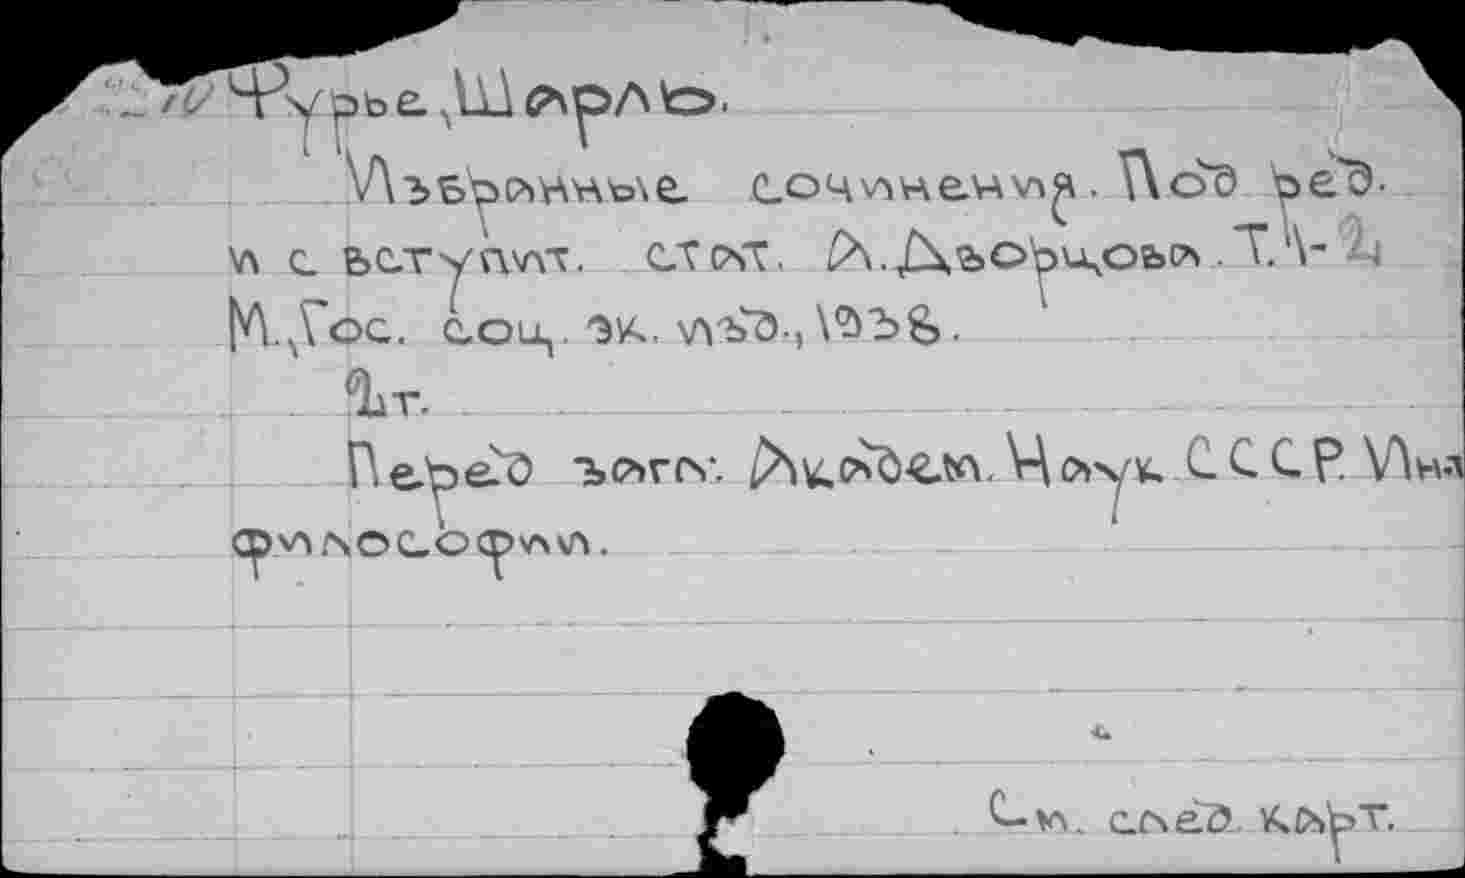 Фурье, Шарль.
Избранные сочинения. Под ред.
и с вступит. стат. А. Дворцова. Т.1-2
М., Гос. соц. эк. изд., 1938.
2т.
Перед загл: Академ. Наук СССР. Ин-т
философии.
См. след карт.